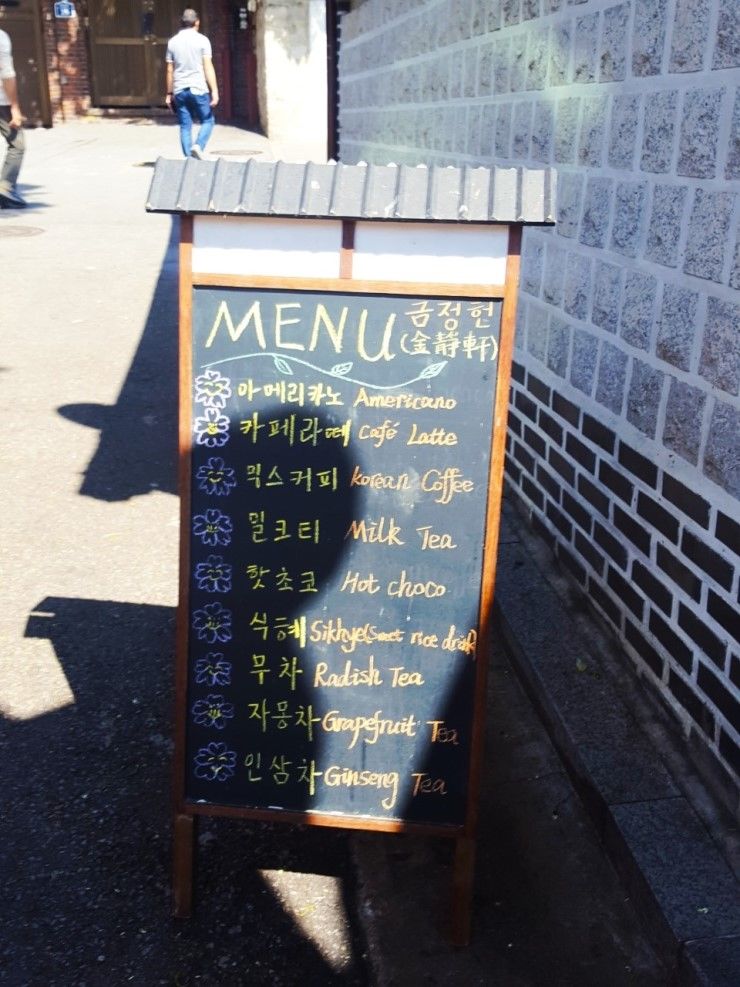 MENU 금정헌
(金靜軒)
아메리카노 Americano
카페라떼 Café Latte
믹스커피 Korean Coffee
밀크티 Milk Tea
핫초코 Hot choco
식혜 Sikhye(Sweet rice drink)
무차 Radish Tea
자몽차 Grapefruit Tea
인삼차 Ginseng Tea